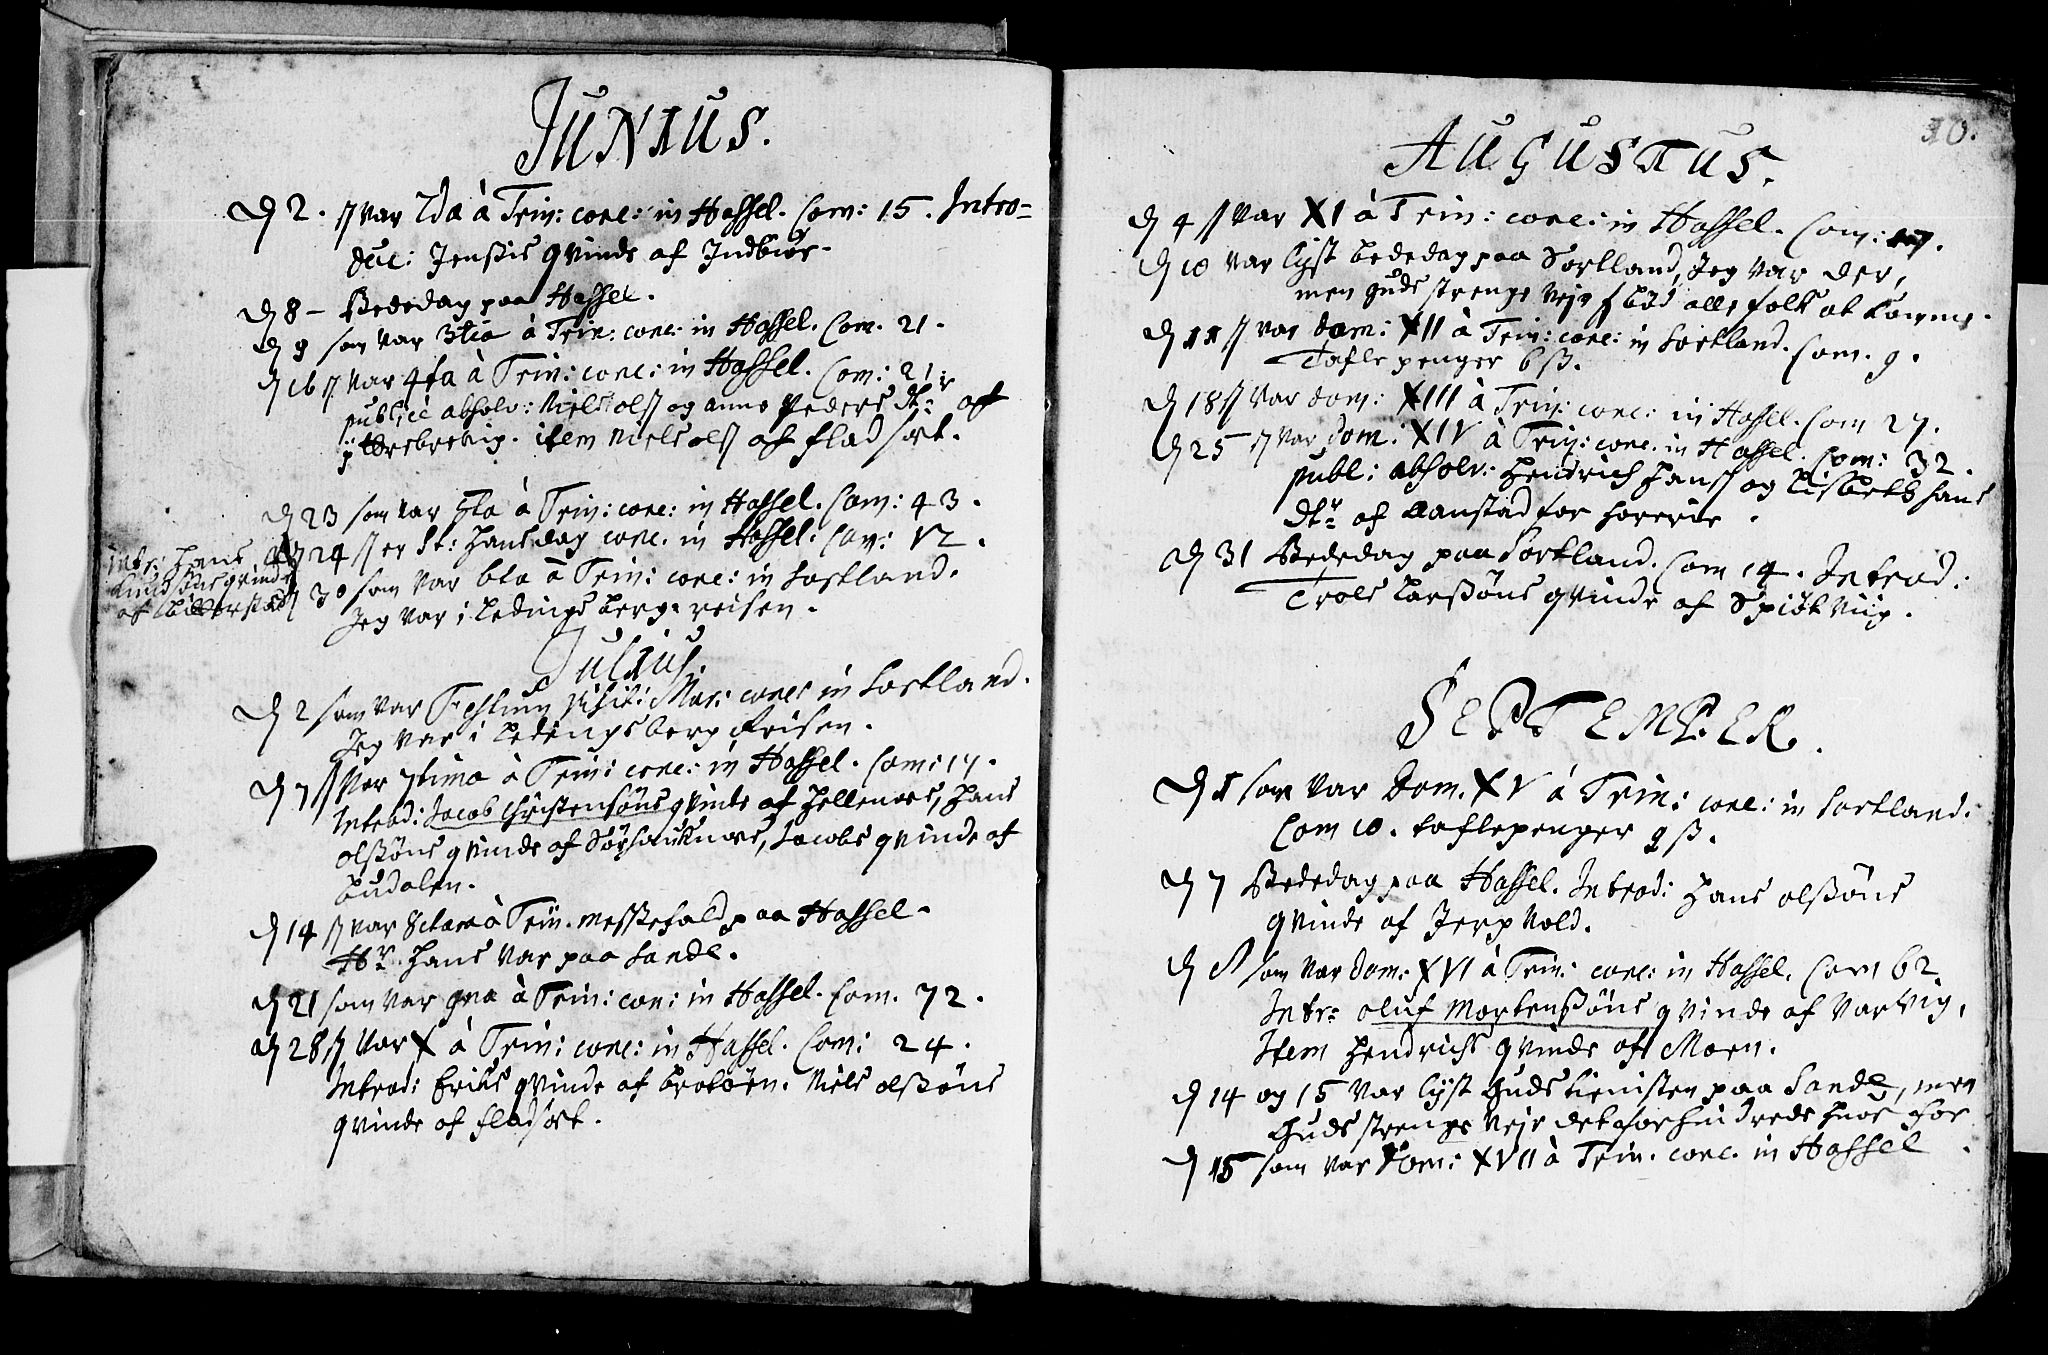 JUNIUS.
D 2. s var 2da à Trin: conc: in Hassel. Com: 15. Intro=
duc: Jensis qvinde af Indbiør.
D 8 - Bededag paa Hassel.
D 9 som var 3tia à Trin: conc: in Hassel. Com. 21.
D 16 s var 4ta à Trin: conc: in Hassel. Com: 21.
publicè absolv: Niels ols og Anne Peders dtr af
item Niels ols af fladsæt.
D 23 som var 5ta à Trin: conc: in Hassel. Com: 43.
D 24 s er St: Hansdag conc. in Hassel. Com: 12.
Intr: Hans
Knudsøns qvinde
af
D 30 som var 6ta à Trin: conc: in Sortland.
Jeg var i Ledings berg. reisen.
Julius.
D 2 som var Festum Visit: Mar: conc: in Sortland.
Jeg var i Ledings berg Reisen.
D 7 s var 7tima à Trin: conc: in Hassel. Com: 17.
Introd: Jacob Christensøns qvinde af Hellenæs, Hans
olssøns qvinde af Sørsandnæs, Jacobs qvinde af
Ludalen.
D 14 s var 8tava à Trin. messefald paa Hassel.
Hr. Hans var paa Lande.
D 21 som var 9na à Trin: con: in Hassel. Com. 72.
D 28 s var X à Trin: conc: in Hassel. Com: 24.
Introd: Eriks qvinde af Brotøen. Niels olssøns
qvinde af fladsæt.
10.
AUGUSTUS.
D 4 s var XI à Trin: conc: in Hassel. Com: 17.
D 10 var lyst bededag paa Sortland, Jeg var der,
men Guds strenge Vejr forbød alle folk at komme.
D 11 s var dom: XII à Trin: conc: in Sortland. Com. 9.
Taflepenger 6 ß.
D 18 s var dom: XIII à Trin: conc: in Hassel. Com 27.
D 25 s var dom: XIV à Trin: conc. in Hassel. Com: 32.
publ: absolv: Hendrich Hanss og Lisbeth Hans
dtr af Aanstad for horerie.
D 31 Bededag paa Sortland. Com 14. Introd:
Trols Larssøns qvinde af Spiøtvig.
SEPTEMBER.
D 1 som var Dom. XV à Trin: conc: in Sortland.
Com 10. taflepenger 9 ß.
D 7 Bededag paa Hassel. Introd: Hans olssøns
qvinde af Jerpvold.
D 8 som var dom: XVI à Trin: conc: in Hassel. Com 62
Intr: oluf Mortenssøns qvinde af Varvig,
Item Hendrichs qvinde af Moen.
D 14 og 15 var lyst Guds tienisten paa Lande, men
Guds strenge Vejr det forhindrede hver for
D 15 som var Dom: XVII à Trin. conc. in Hassel.